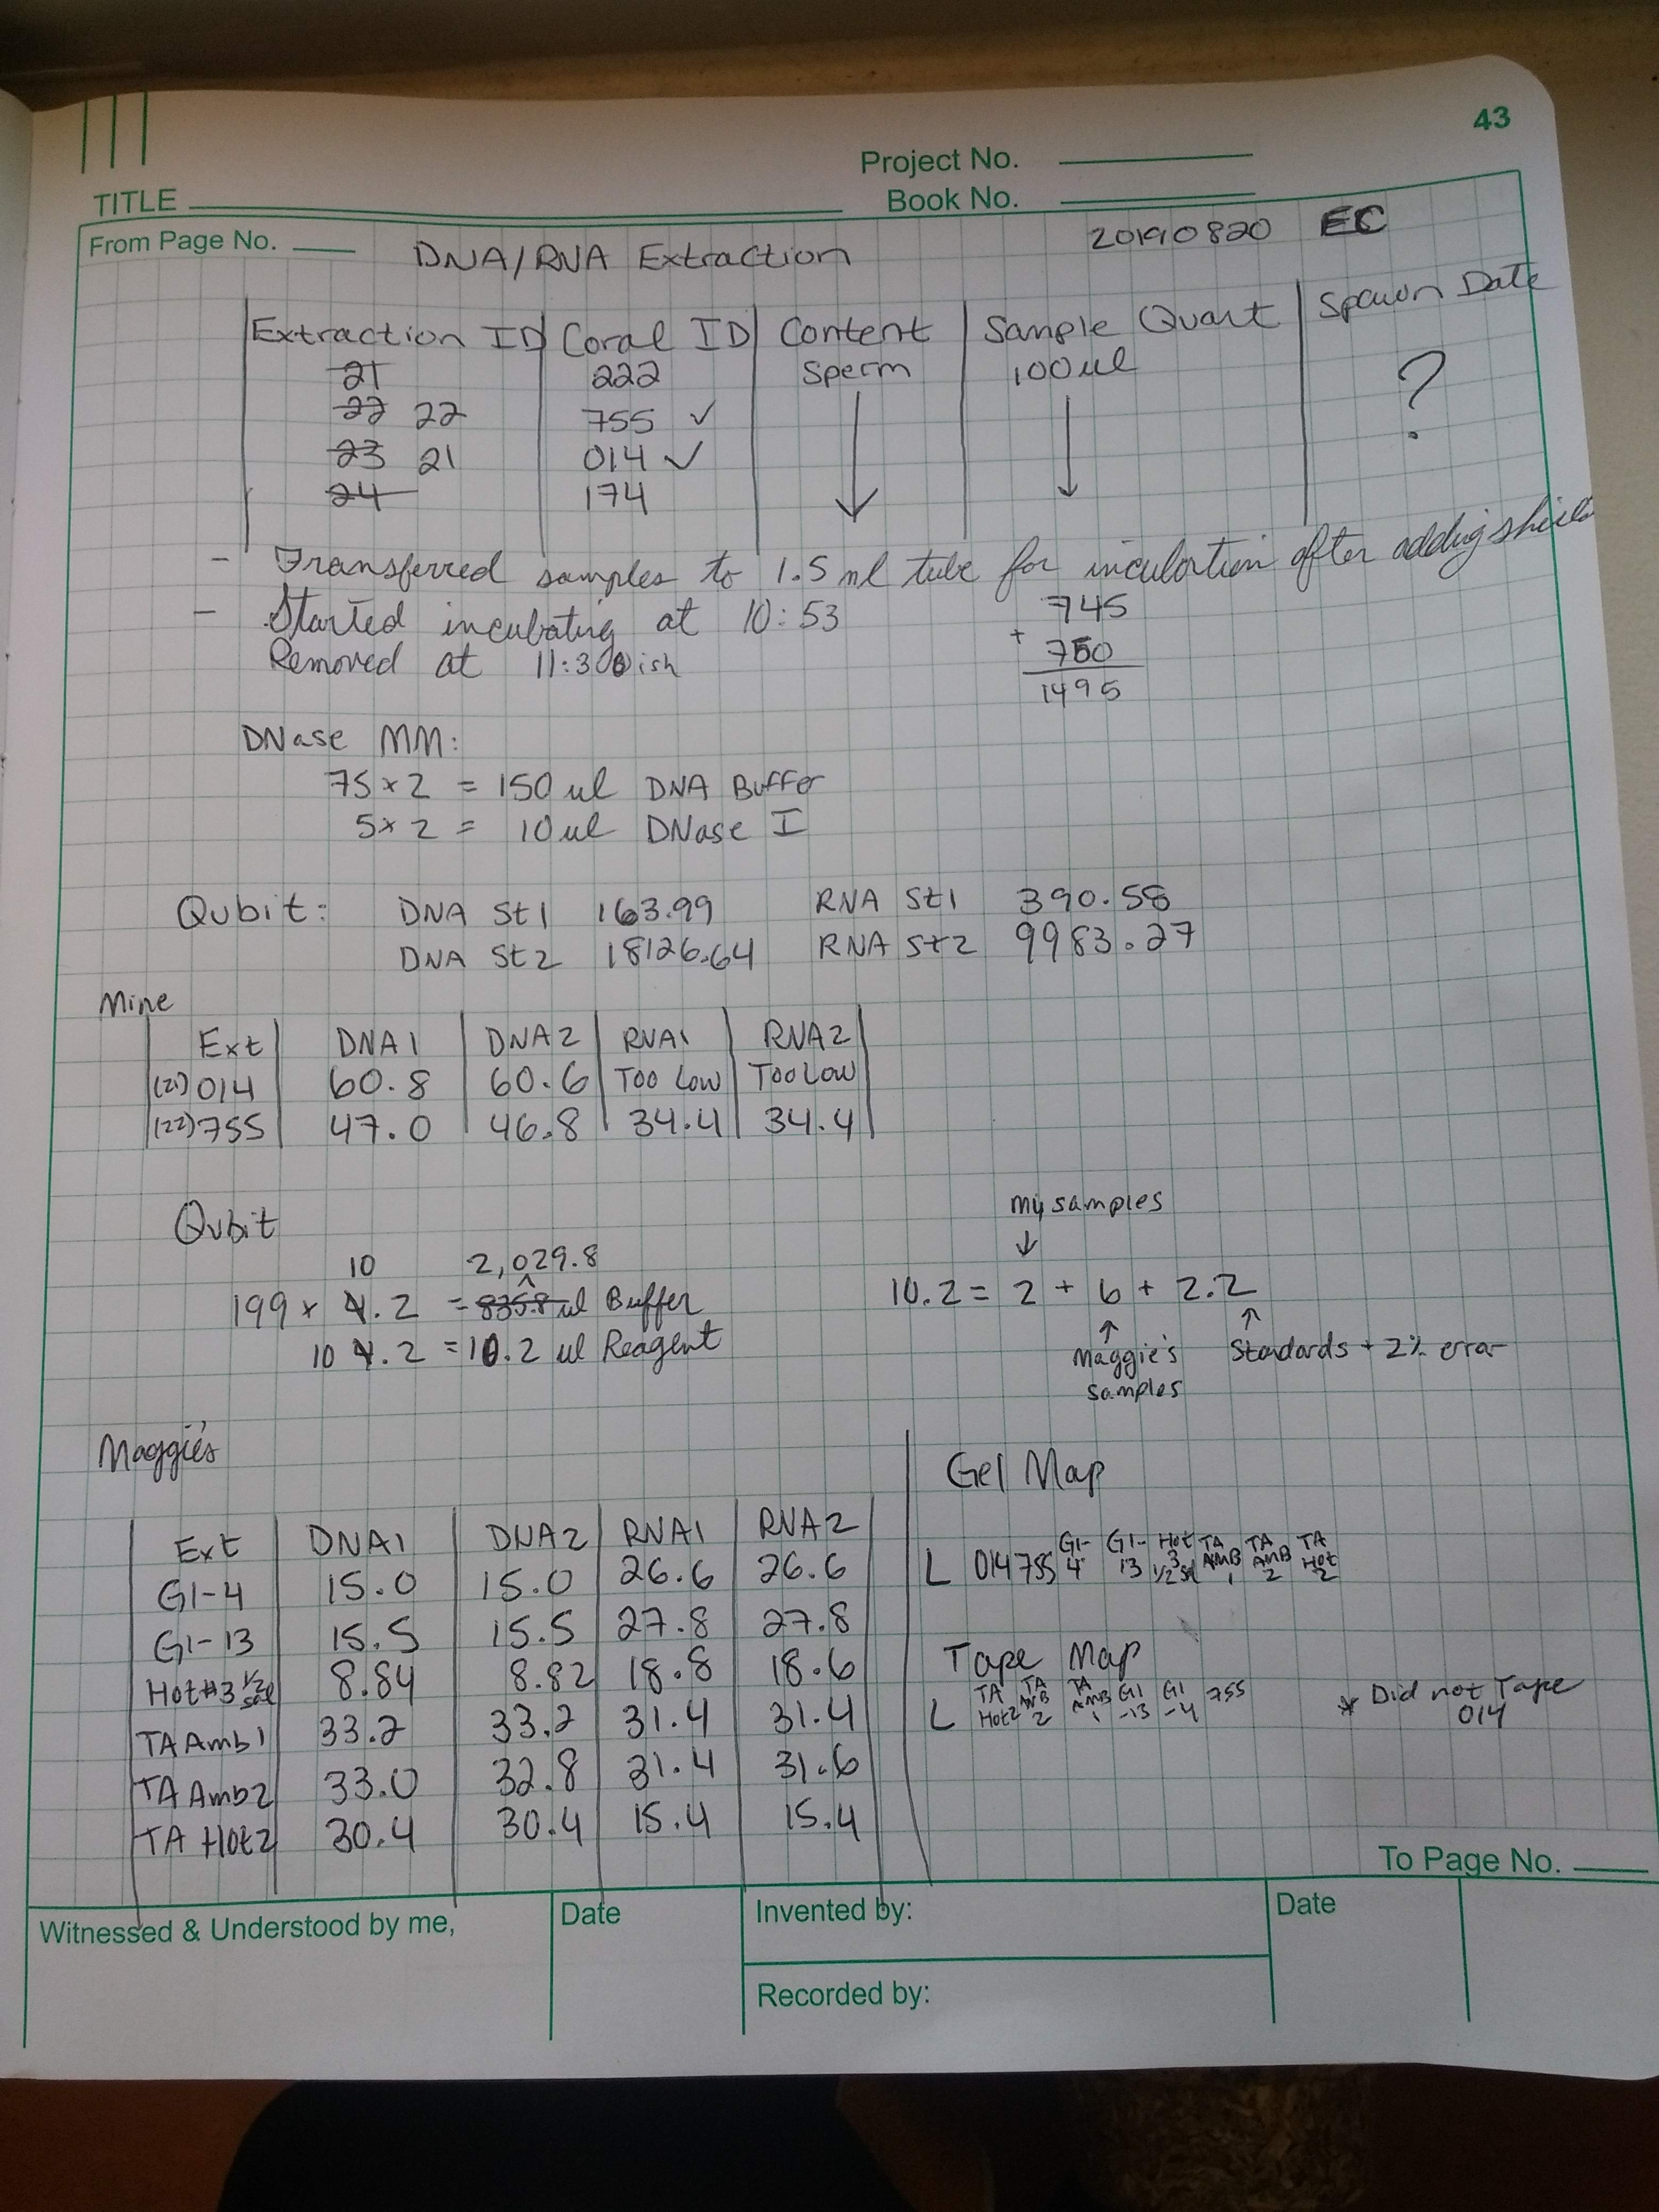 43
Project No.
TITLE
Book No.
From Page No.
DNA/RNA Extraction
20190820 EC
Extraction ID Coral ID Content Sample Quant Spawn Date
21 222 Sperm 100 ul ?
22 22 755 ✓
23 21 014 ✓
24 174
- Transferred samples to 1.5 ml tube for incubation after adding shield
- Started incubating at 10:53
Removed at 11:30ish
745
+ 750
1495
DNase MM:
75 x 2 = 150 ul DNA Buffer
5 x 2 = 10 ul DNase I
Qubit: DNA St1 163.99 RNA St1 390.58
DNA St2 18126.64 RNA St2 9983.27
Mine
Ext DNA1 DNA2 RNA1 RNA2
(21) 014 60.8 60.6 Too Low Too Low
(22) 755 47.0 46.8 34.4 34.4
My samples
↓
Qubit
10 2,029.8
199 x 4.2 = 835.8 ul Buffer
10 4.2 = 10.2 ul Reagent
10.2 = 2 + 6 + 2.2
↑ ↑
Maggie's samples
Standards + 2% error
Maggie's
Ext DNA1 DNA2 RNA1 RNA2
G1-4 15.0 15.0 26.6 26.6
G1-13 15.5 15.5 27.8 27.8
Hot#3 1/2 sal 8.84 8.82 18.8 18.6
TA Amb1 33.2 33.2 31.4 31.4
TA Amb2 33.0 32.8 31.4 31.6
TA Hot2 30.4 30.4 15.4 15.4
Gel Map
L 014 755 G1-4 G1-13 Hot 3 1/2 sal TA AMB 1 TA AMB 2 TA Hot 2
Tape Map
L TA Hot2 TA AMB 2 TA AMB 1 G1-13 G1-4 755
* Did not Tape 014
To Page No.
Witnessed & Understood by me,
Date
Invented by:
Date
Recorded by: